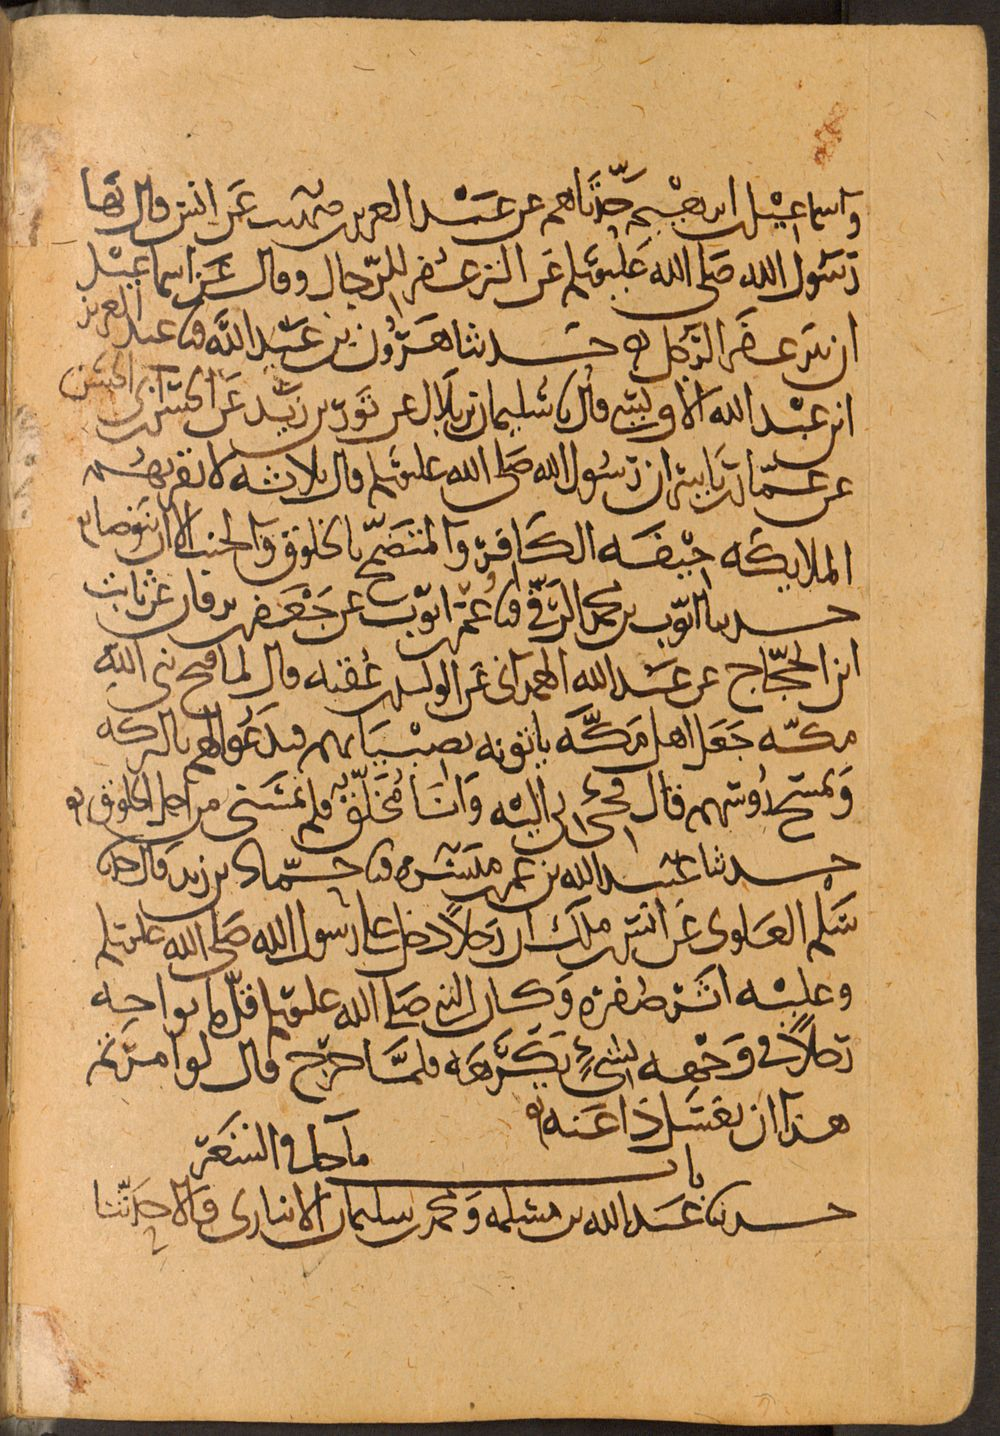 واسماعيل ان ابرهيم حدثاهم عن عبد العزيز بن صهيب عن انس قال نها
رسول الله صلى الله عليه وسلم عن التزعفر للرجال وقال عن اسماعيل
ان يتزعفر الرجل حدثنا هرون بن عبد الله نا عبد العزيز
ابن عبد الله الاويسى قال نا سليمان بن بلال عن ثور بن زيد عن الحسن بن ابى الحسن
عن عمار بن ياسر ان رسول الله صلى الله عليه وسلم قال ثلاثة لا تقربهم
الملايكه جيفه الكافر والمتضمخ بالخلوق والجنب الا ان يتوضا
حدثنا ايوب بن محمد الرقى نا عمر بن ايوب عن جعفر بن برقان عن ثابت
ابن الحجاج عن عبد الله الهمدانى عن الوليد بن عقبه قال لما فتح نبى الله
مكه جعل اهل مكه ياتونه بصبيانهم فيدعوا لهم بالبركه
ويمسح رؤسهم قال فجئ بى اليه وانا مخلق فلم يمسنى من اجل الخلوق
حدثنا عبيد الله بن عمر بن ميسره نا حماد بن زيد قال حدثنا
سلم العلوى عن انس بن ملك ان رجلا دخل على رسول الله صلى الله عليه وسلم
وعليه اثر صفره وكان النبى صلى الله عليه وسلم قل ما يواجه
رجلا فى وجهه بشئ يكرهه فلما خرج قال لو امرتم
هذا ان يغسل ذا عنه
باب ما جا فى الشعر
حدثنا عبد الله بن مسلمه ومحمد بن سليمان الانبارى قالا حدثنا